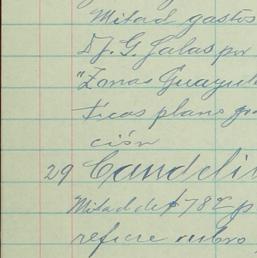 Mitad gastos
D. J. G. Galas por
"Zonas Guayul
ticas plano
ción
29 Candeli
Mitad de $782 p
refiere rubro